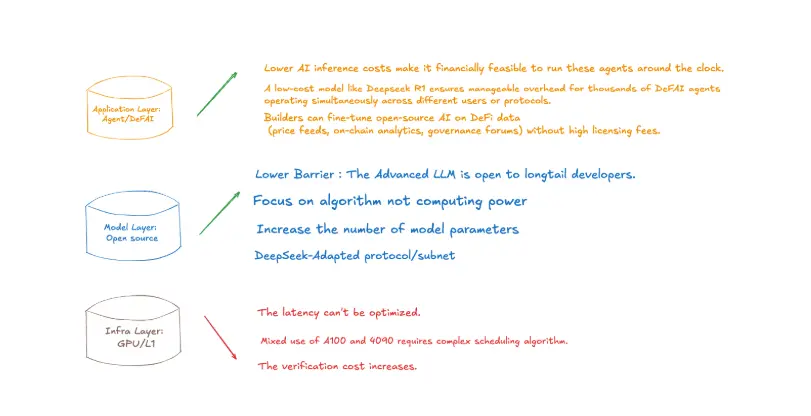 Lower AI inference costs make it financially feasible to run these agents around the clock.
Application Layer:
Agent/DeFAI
A low-cost model like Deepseek R1 ensures manageable overhead for thousands of DeFAI agents
operating simultaneously across different users or protocols.
Builders can fine-tune open-source AI on DeFi data
(price feeds, on-chain analytics, governance forums) without high licensing fees.
Lower Barrier : The Advanced LLM is open to longtail developers.
Focus on algorithm not computing power
Model Layer:
Open source
Increase the number of model parameters
DeepSeek-Adapted protocol/subnet
Infra Layer:
GPU/L1
The latency can't be optimized.
Mixed use of A100 and 4090 requires complex scheduling algorithm.
The verification cost increases.